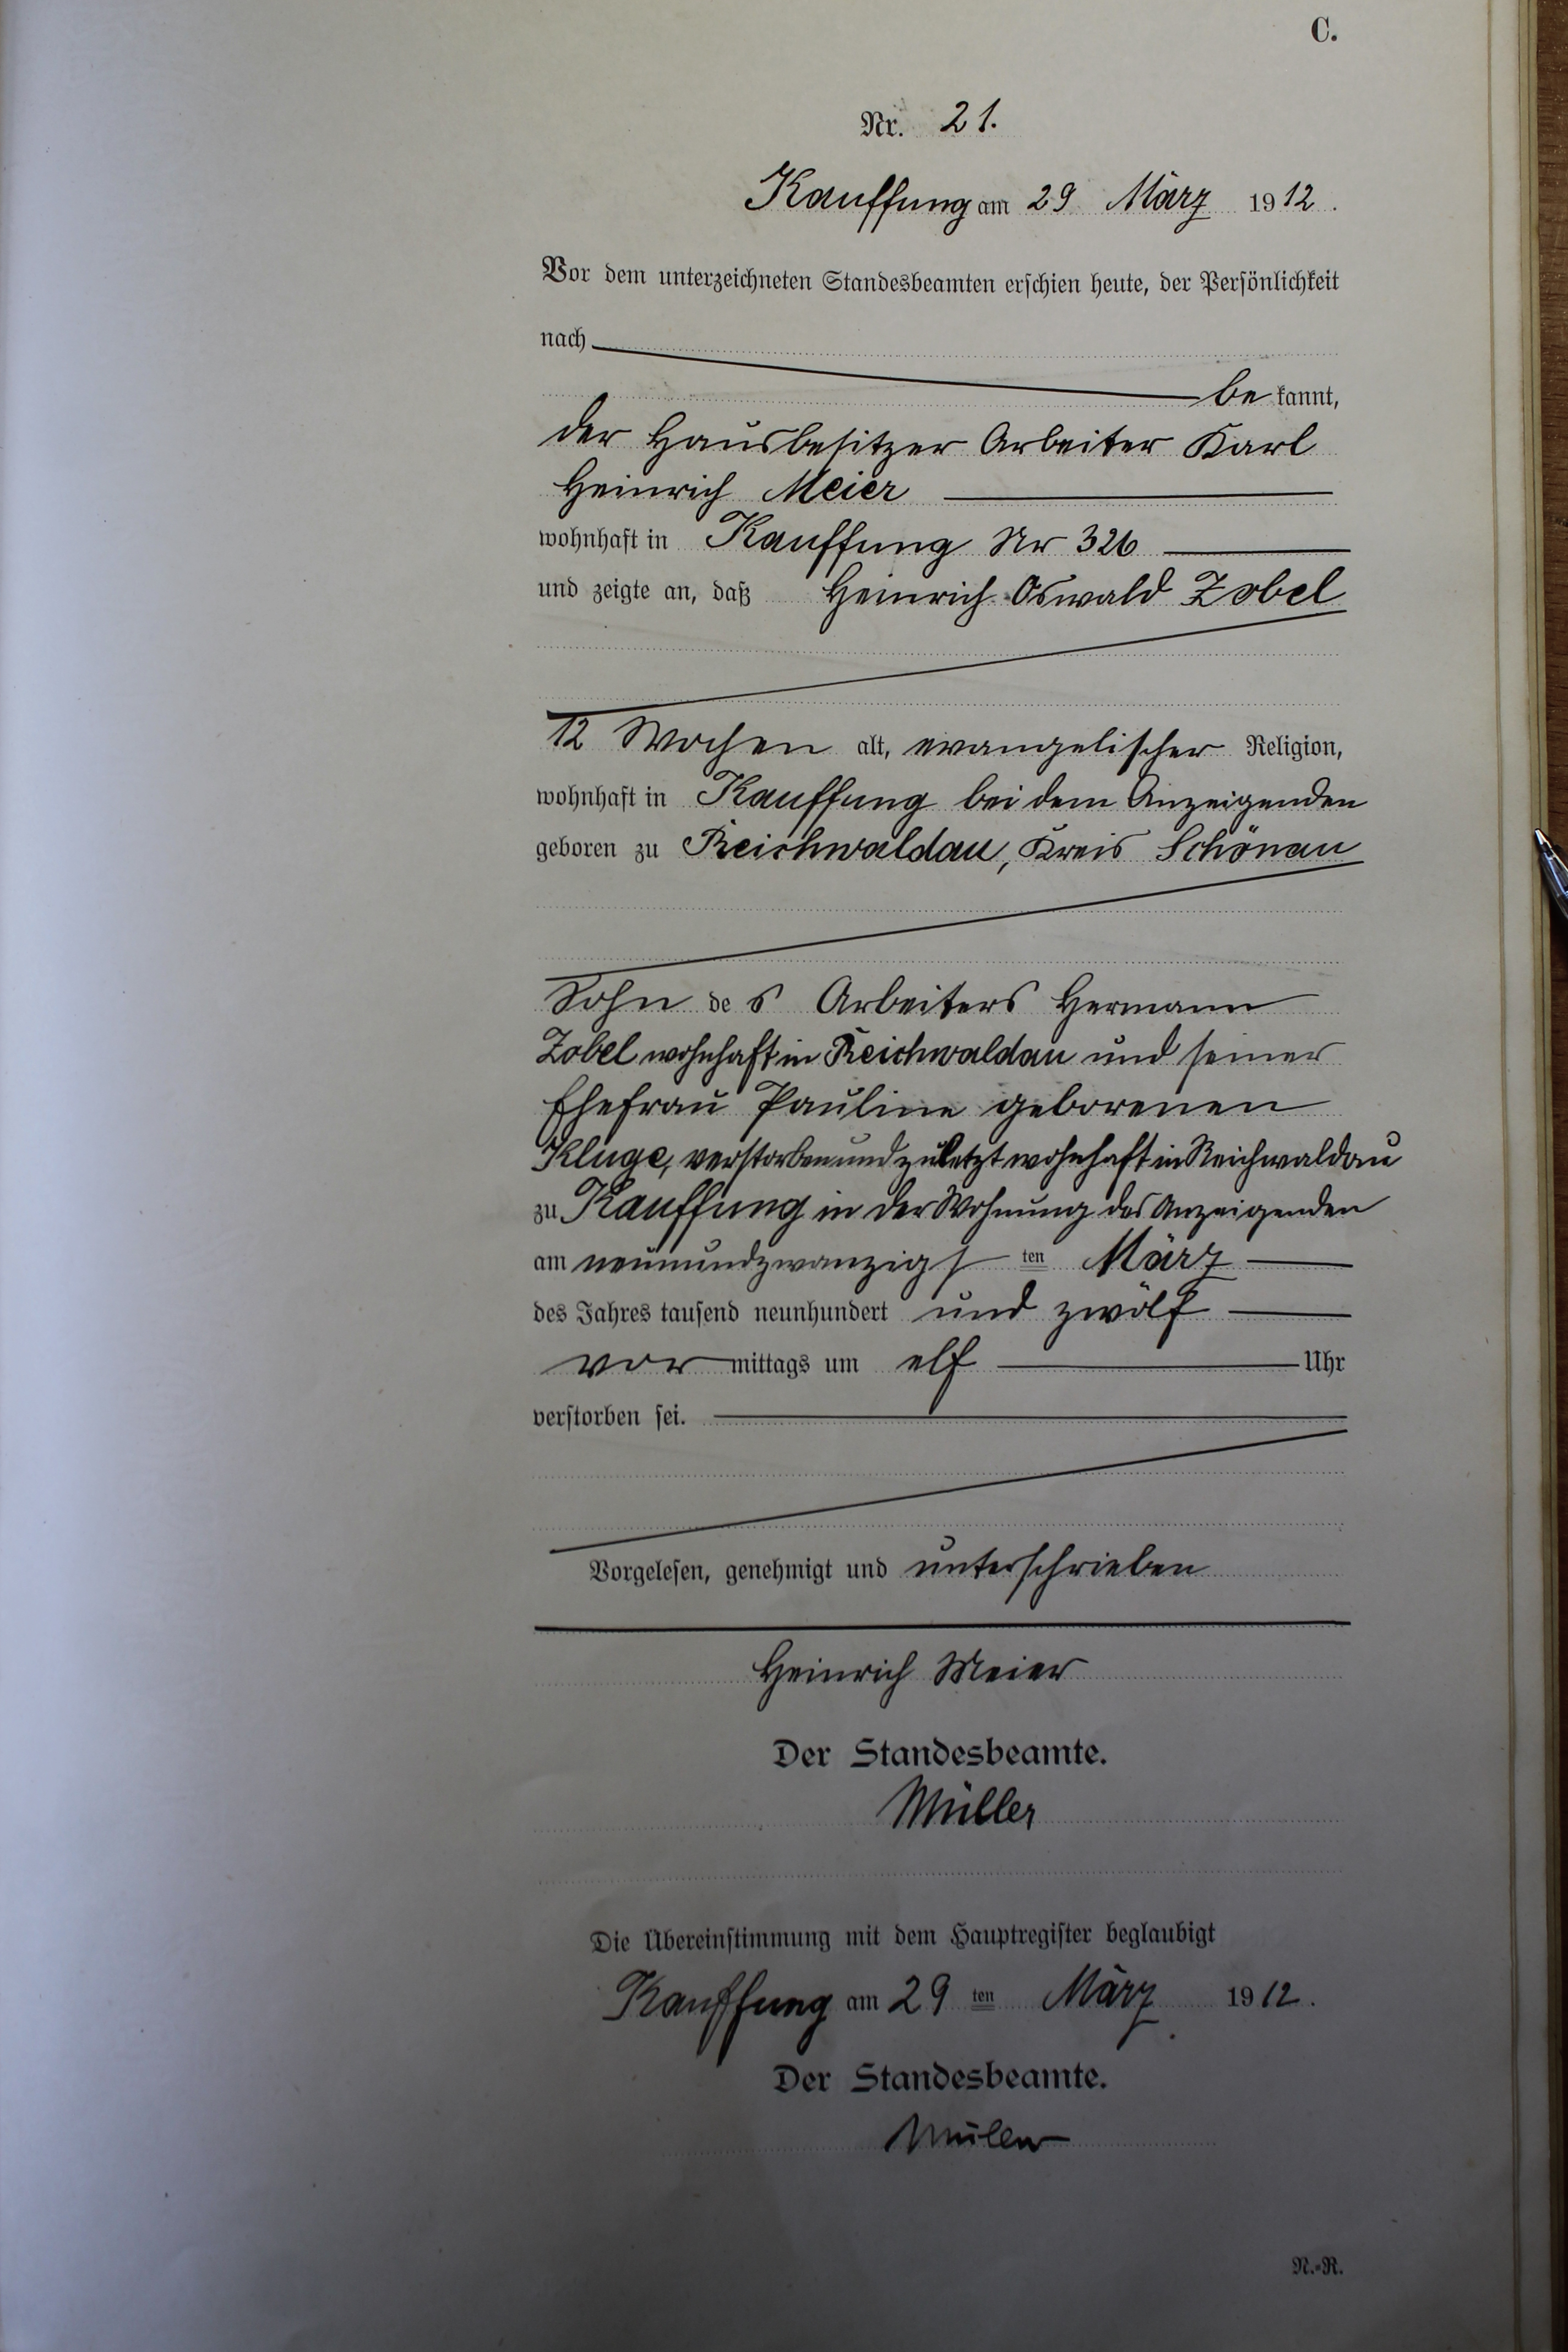 C.
Nr. 21.
Kauffung am 29 März 1912.
Vor dem unterzeichneten Standesbeamten erschien heute, der Persönlichkeit
nach
bekannt,
der Hausbesitzer Arbeiter Karl
Heinrich Meier
wohnhaft in Kauffung Nr 326
und zeigte an, daß Heinrich Oswald Zobel
12 Wochen alt, evangelischer Religion,
wohnhaft in Kauffung bei dem Anzeigenden
geboren zu Reichwaldau, Kreis Schönau
Sohn des Arbeiters Hermann
Zobel wohnhaft in Reichwaldau und seiner
Ehefrau Pauline geborenen
Kluge, verstorben und zuletzt wohnhaft in Reichwaldau
zu Kauffung in der Wohnung des Anzeigenden
am neunundzwanzigsten März
des Jahres tausend neunhundert und zwölf
vormittags um elf Uhr
verstorben sei.
Vorgelesen, genehmigt und unterschrieben
Heinrich Meier
Der Standesbeamte.
Müller
Die Übereinstimmung mit dem Hauptregister beglaubigt
Kauffung am 29ten März 1912.
Der Standesbeamte.
Müller
N.-R.